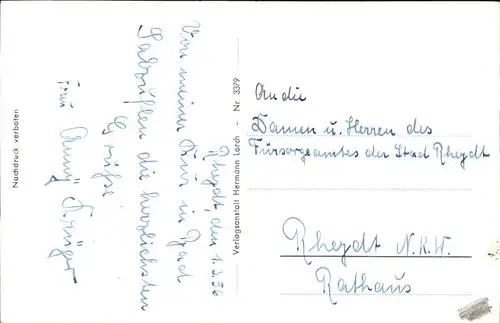 Rheydt, den 1.3.56
Von meiner Kur in Bad
Salzuflen die herzlichsten
Grüße
Frau Änny Krüger
Nachdruck verboten
Verlagsanstalt Hermann Lorch - Nr. 3379
An die
Damen u. Herren des
Fürsorgeamtes der Stad Rheydt
Rheydt N.R.W.
Rathaus